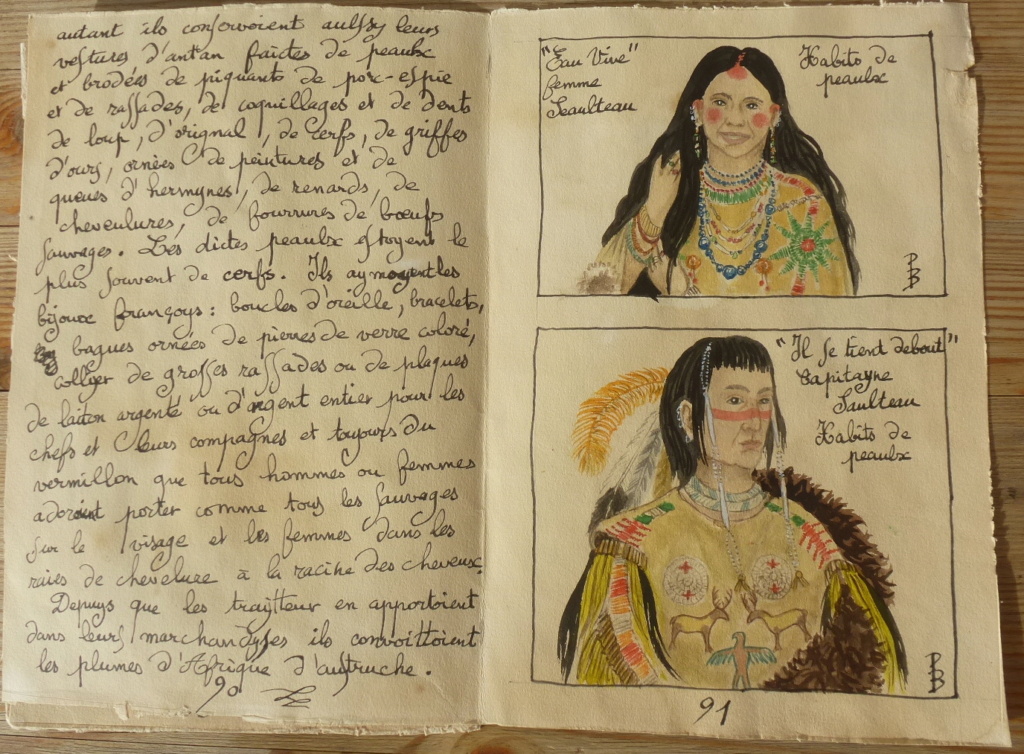 autant ils conservoient aulssy leurs
vestures d'antan faictes de peaulx
et brodées de piquants de porc-espie
et de rassades, de coquillages et de dents
de loup, d'orignal, de cerfs, de griffes
d'ours, ornées de peintures et de
queues d'hermynes, de renards, de
cheveulures, de fourrures de bœufs
sauvages. Les dictes peaulx estoyent le
plus souvent de cerfs. Ils aymoyent les
bijoux françoys : boucles d'oreille, bracelets,
bagues ornées de pierres de verre coloré,
collyer de grosses rassades ou de plaques
de laiton argenté ou d'argent entier pour les
chefs et leurs compagnes et toujours du
vermillon que tous hommes ou femmes
adoroient porter comme tous les sauvages
sur le visage et les femmes dans les
raies de chevelure à la racine des cheveux.
Depuys que les traytteur en apportoient
dans leurs marchandyses ils convoittoient
les plumes d'Afrique d'austruche.
90
"Eau Vive"
femme
Saulteau
Habits de
peaulx
PB
"Il se tient debout"
Capitayne
Saulteau
Habits de
peaulx
PB
91